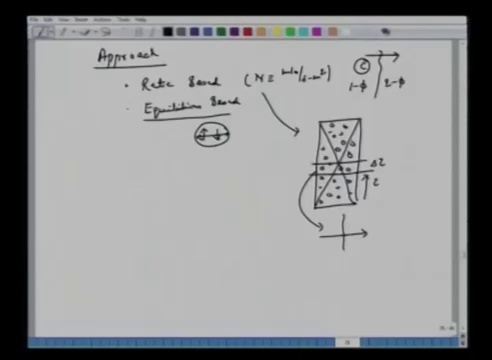 Approach
• Rate Based (N ≡ mole/s-m²)
• Equilibrium Based
C
1-φ 2-φ
Δz
z